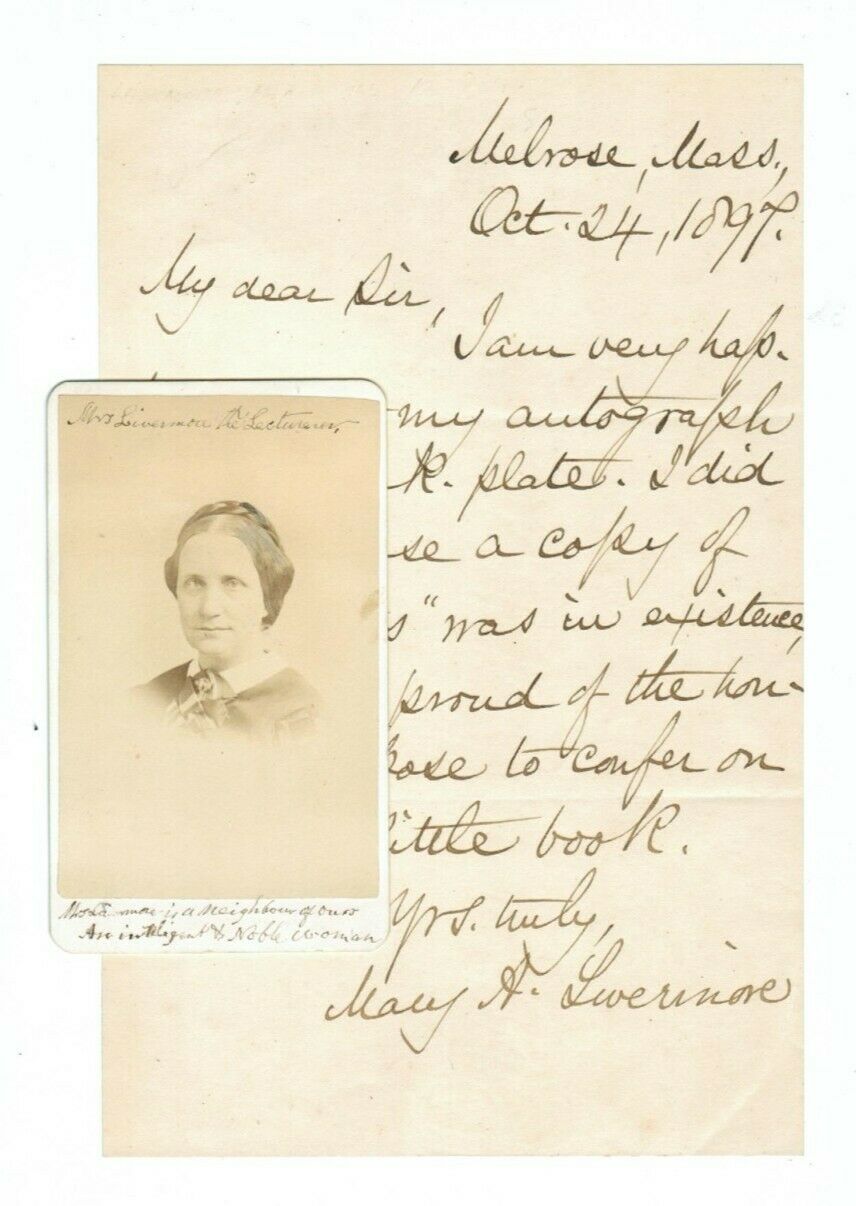 Melrose, Mass.,
Oct. 24, 1897.
My dear Sir,
I am very hap-
my autograph
k. plate. I did
se a copy of
s" was in existence,
proud of the hon-
pose to confer on
little book.
Yrs. truly,
Mary A. Livermore
Mrs Livermore the Lecturerer,
Mrs Livermore is a Neighbour of ours
An intelligent & Noble woman